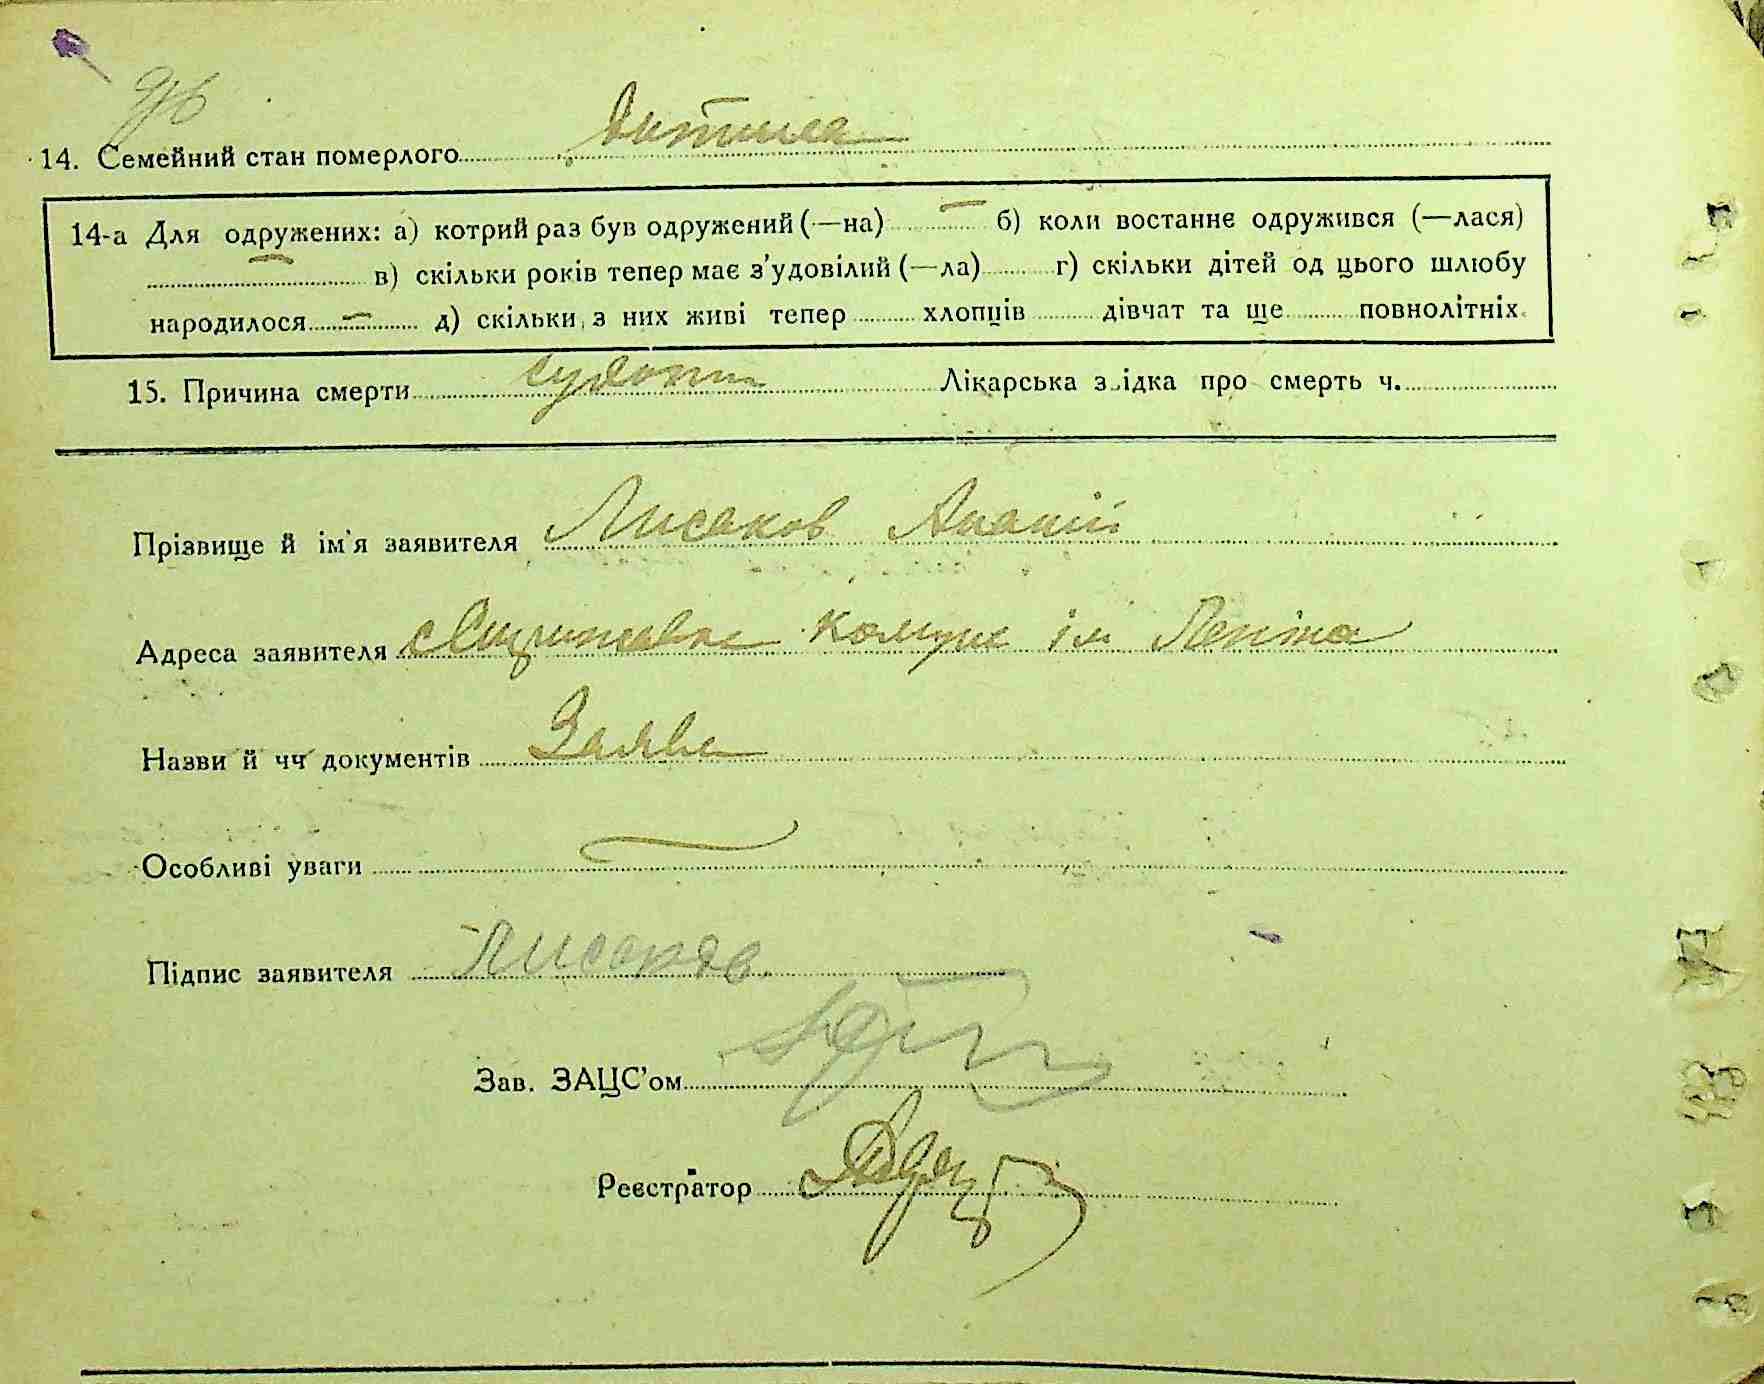 14. Семейний стан померлого дитина
14-а Для одружених: а) котрий раз був одружений (—на) — б) коли востаннє одружився (—лася)
— в) скільки років тепер має з'удовілий (—ла) г) скільки дітей од цього шлюбу
народилося — д) скільки з них живі тепер хлопців дівчат та ще повнолітніх
15. Причина смерти судоти Лікарська з ідка про смерть ч.
Прізвище й ім'я заявителя Лисаков Ананій
Адреса заявителя комуна ім Леніна
Назви й чч документів Заява
Особливі уваги —
Підпис заявителя Лисаков
Зав. ЗАЦС'ом
Реєстратор